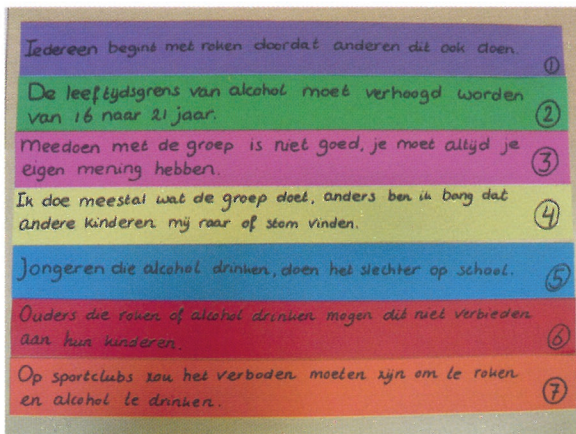 Iedereen begint met roken doordat anderen dit ook doen. ①
De leeftijdsgrens van alcohol moet verhoogd worden
van 16 naar 21 jaar. ②
Meedoen met de groep is niet goed, je moet altijd je
eigen mening hebben. ③
Ik doe meestal wat de groep doet, anders ben ik bang dat
andere kinderen mij raar of stom vinden. ④
Jongeren die alcohol drinken, doen het slechter op school. ⑤
Ouders die roken of alcohol drinken mogen dit niet verbieden
aan hun kinderen. ⑥
Op sportclubs zou het verboden moeten zijn om te roken
en alcohol te drinken. ⑦